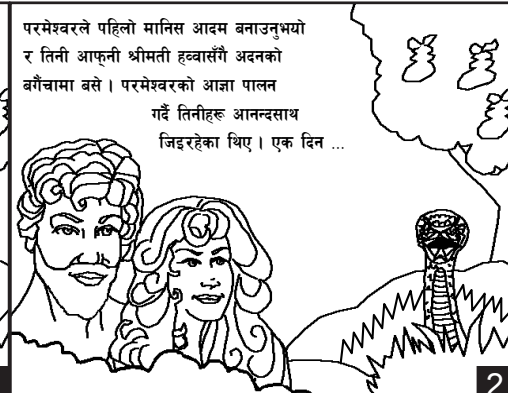 परमेश्वरले पहिलो मानिस आदम बनाउनुभयो
र तिनी आफ्‌नी श्रीमती हव्वासँगै अदनको
बगैंचामा बसे । परमेश्वरको आज्ञा पालन
गर्दै तिनीहरू आनन्दसाथ
जिइरहेका थिए । एक दिन ...
2